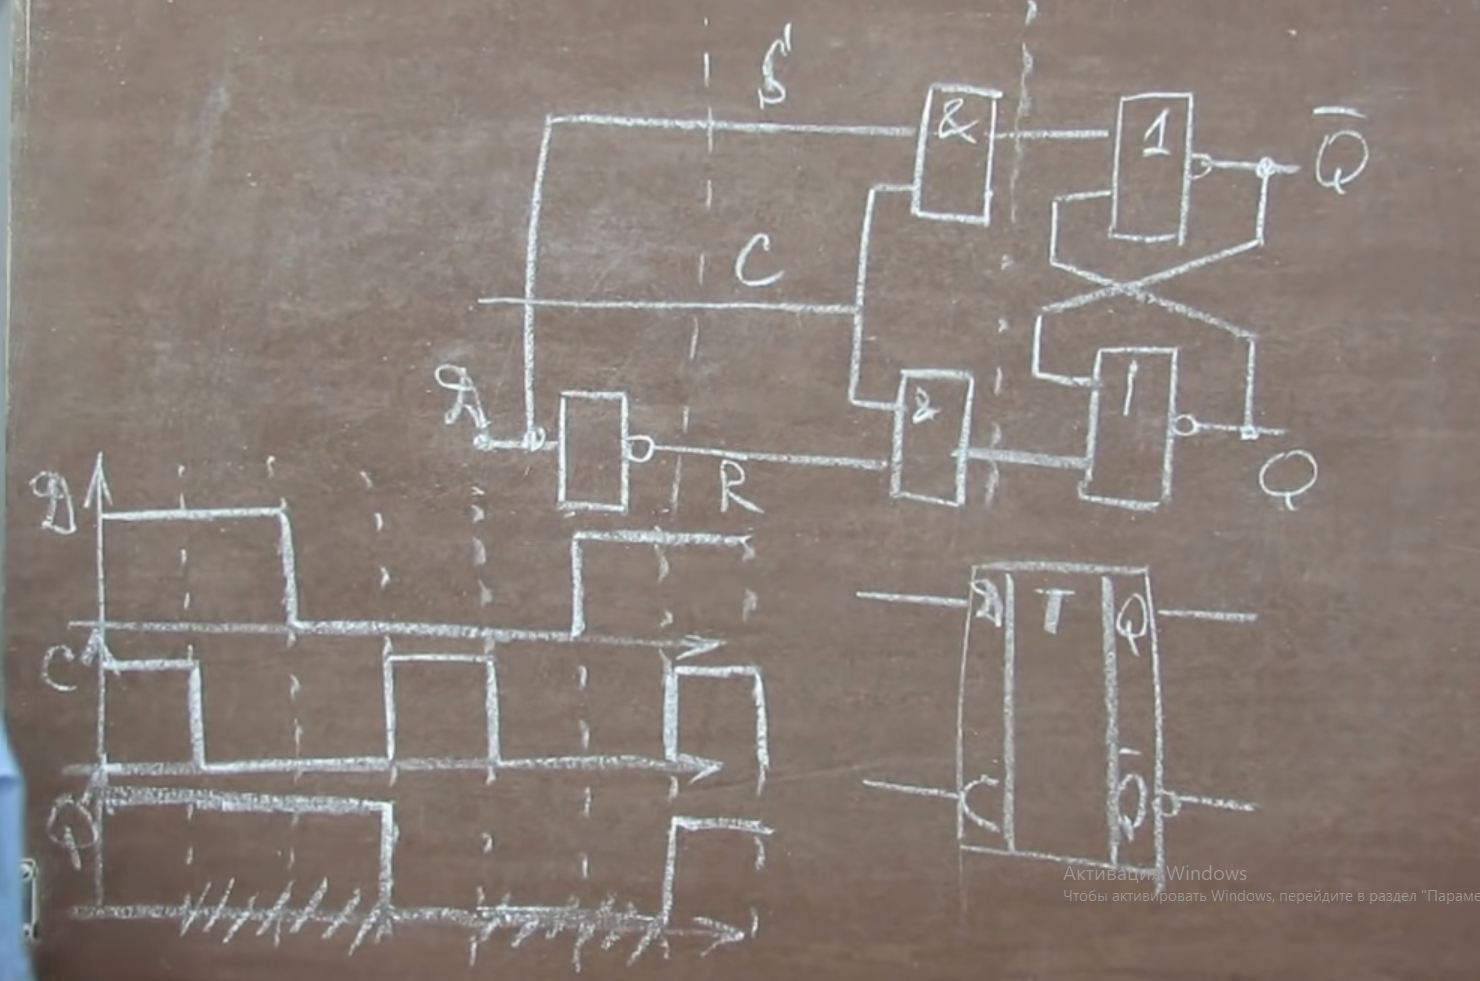 S
& 1 Q̅
C
D
& 1
R Q
D
D T Q
C
C Q̅
Q
Активация Windows
Чтобы активировать Windows, перейдите в раздел "Параме